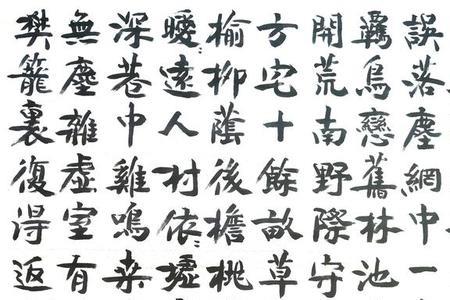 誤落塵網中一
羈鳥戀舊林池
開荒南野際守
方宅十餘畝草
榆柳蔭後檐桃
曖〻遠人村依〻墟
深巷中雞鳴桑
無塵雜虛室有
樊籠裏復得返